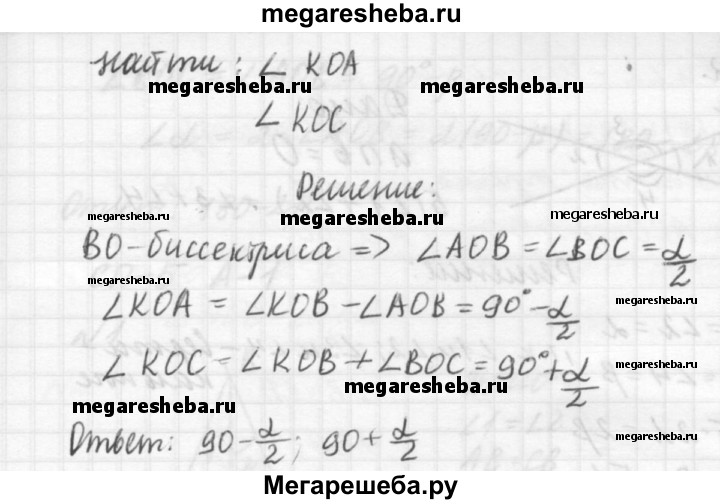 megaresheba.ru
найти: ∠ KOA
megaresheba.ru megaresheba.ru
∠ KOC
megaresheba.ru
Решение:
megaresheba.ru megaresheba.ru megaresheba.ru
BO-биссектриса => ∠AOB = ∠BOC = α/2
megaresheba.ru
∠KOA = ∠KOB - ∠AOB = 90° - α/2
megaresheba.ru
megaresheba.ru
∠ KOC = ∠KOB + ∠BOC = 90° + α/2
megaresheba.ru
megaresheba.ru
megaresheba.ru
Ответ: 90 - α/2; 90 + α/2
megaresheba.ru
Мегарешеба.ру